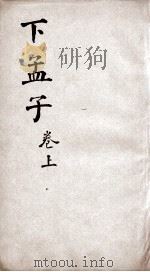 下孟子
卷上
mtoou.info